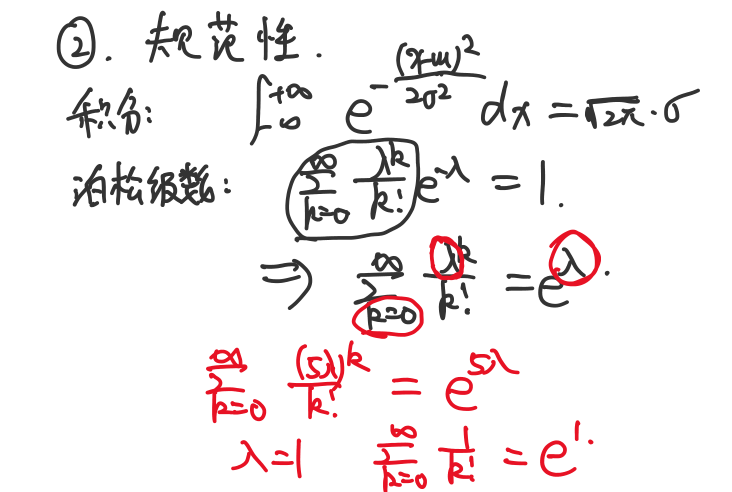 ②. 规范性.
积分: ∫_{-∞}^{+∞} e^{-\frac{(x-μ)^2}{2σ^2}} dx = √2π · σ
泊松级数: ∑_{k=0}^{∞} \frac{λ^k}{k!} e^{-λ} = 1.
⇒ ∑_{k=0}^{∞} \frac{λ^k}{k!} = e^λ.
∑_{k=0}^{∞} \frac{(5λ)^k}{k!} = e^{5λ}
λ=1 ∑_{k=0}^{∞} \frac{1}{k!} = e^1.